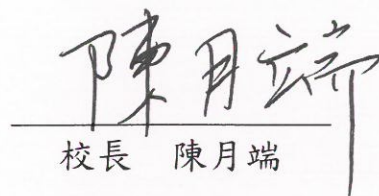 陳月端
校長 陳月端